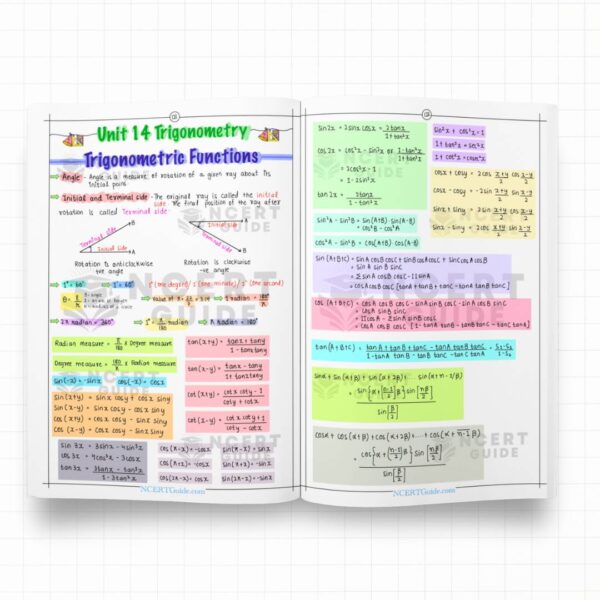 Unit 14 Trigonometry
Trigonometric Functions
Angle - Angle is a measure of rotation of a given ray about its
initial point
Initial and Terminal side - The original ray is called the initial
side. The final position of the ray after
rotation is called Terminal side.
Terminal side
Initial side
A
B
Rotation is anticlockwise
+ve angle
Initial side
Terminal side
A
B
Rotation is clockwise
-ve angle
1° = 60' 1' = 60" 1° (one degree) 1' (one minute) 1" (one second)
1 radian = 180°/π
2π radian = 360° 1° = π/180 radian π radian = 180°
Radian measure = π/180 × Degree measure
Degree measure = 180/π × Radian measure
sin(-x) = -sinx cos(-x) = cosx
sin(x+y) = sinx cosy + cosx siny
sin(x-y) = sinx cosy - cosx siny
cos(x+y) = cosx cosy - sinx siny
cos(x-y) = cosx cosy + sinx siny
tan(x+y) = tanx + tany / 1 - tanx tany
tan(x-y) = tanx - tany / 1 + tanx tany
cot(x+y) = cotx coty - 1 / coty + cotx
cot(x-y) = cotx coty + 1 / coty - cotx
sin3x = 3sinx - 4sin³x
cos3x = 4cos³x - 3cosx
tan3x = 3tanx - tan³x / 1 - 3tan²x
cos(π-x) = -cosx
cos(π+x) = -cosx
cos(2π-x) = cosx
sin(π-x) = sinx
sin(π+x) = -sinx
sin(2π-x) = -sinx
NCERTGuide.com
sin2x = 2sinx cosx = 2tanx / 1+tan²x
cos2x = cos²x - sin²x or 1-tan²x / 1+tan²x
= 2cos²x - 1
= 1 - 2sin²x
tan2x = 2tanx / 1 - tan²x
sin²x + cos²x = 1
1 + tan²x = sec²x
1 + cot²x = cosec²x
cosx + cosy = 2cos x+y/2 cos x-y/2
cosx - cosy = -2sin x+y/2 sin x-y/2
sinx + siny = 2sin x+y/2 cos x-y/2
sinx - siny = 2cos x+y/2 sin x-y/2
sin²A - sin²B = sin(A+B)·sin(A-B)
= cos²B - cos²A
cos²A - sin²B = cos(A+B) cos(A-B)
sin(A+B+C) = sinA cosB cosC + sinB cosA cosC + sinC cosA cosB
- sinA sinB sinC
cos(A+B+C) = cosA cosB cosC - sinA sinB cosC - sinA cosB sinC
- cosA sinB sinC
= cosA cosB cosC [1 - tanA tanB - tanB tanC - tanC tanA]
tan(A+B+C) = tanA + tanB + tanC - tanA tanB tanC / 1 - tanA tanB - tanB tanC - tanC tanA = S₁-S₃ / 1-S₂
NCERTGuide.com
NCERT
GUIDE